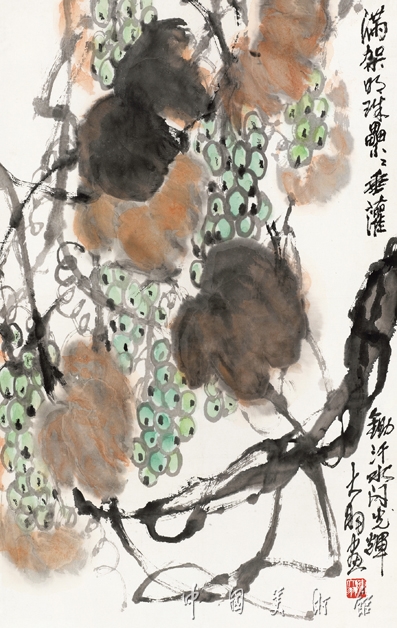 满架明珠累〻垂灌
锄汗水闪光辉
大羽画
中国美术馆